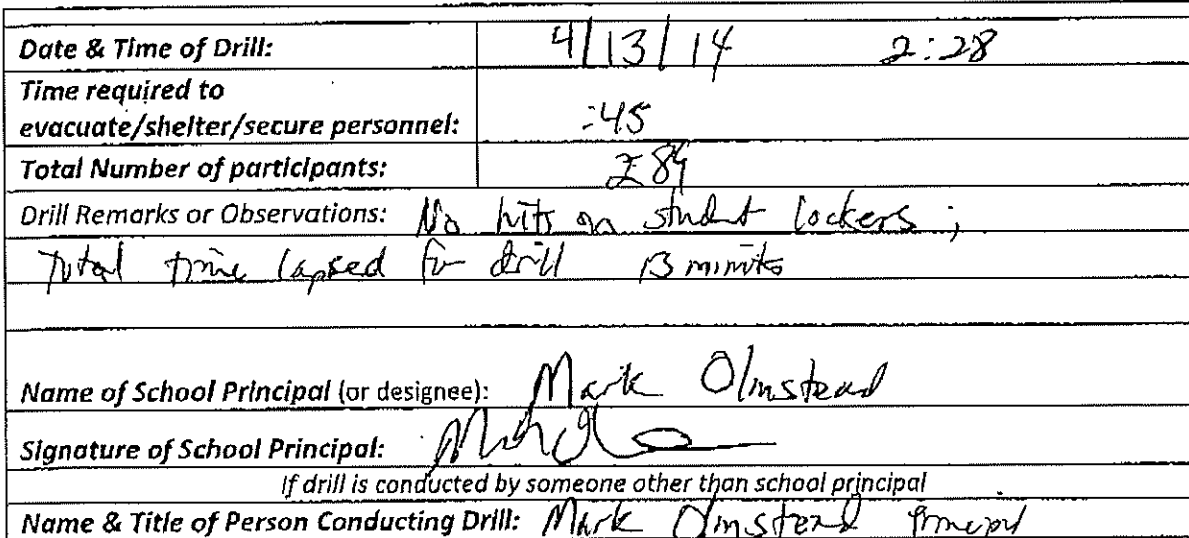 Date & Time of Drill: 4/13/14 2:28
Time required to
evacuate/shelter/secure personnel: :45
Total Number of participants: 284
Drill Remarks or Observations: No hits on student lockers ;
Total time lapsed for drill 13 minuts
Name of School Principal (or designee): Mark Olmstead
Signature of School Principal:
If drill is conducted by someone other than school principal
Name & Title of Person Conducting Drill: Mark Olmstead Principal